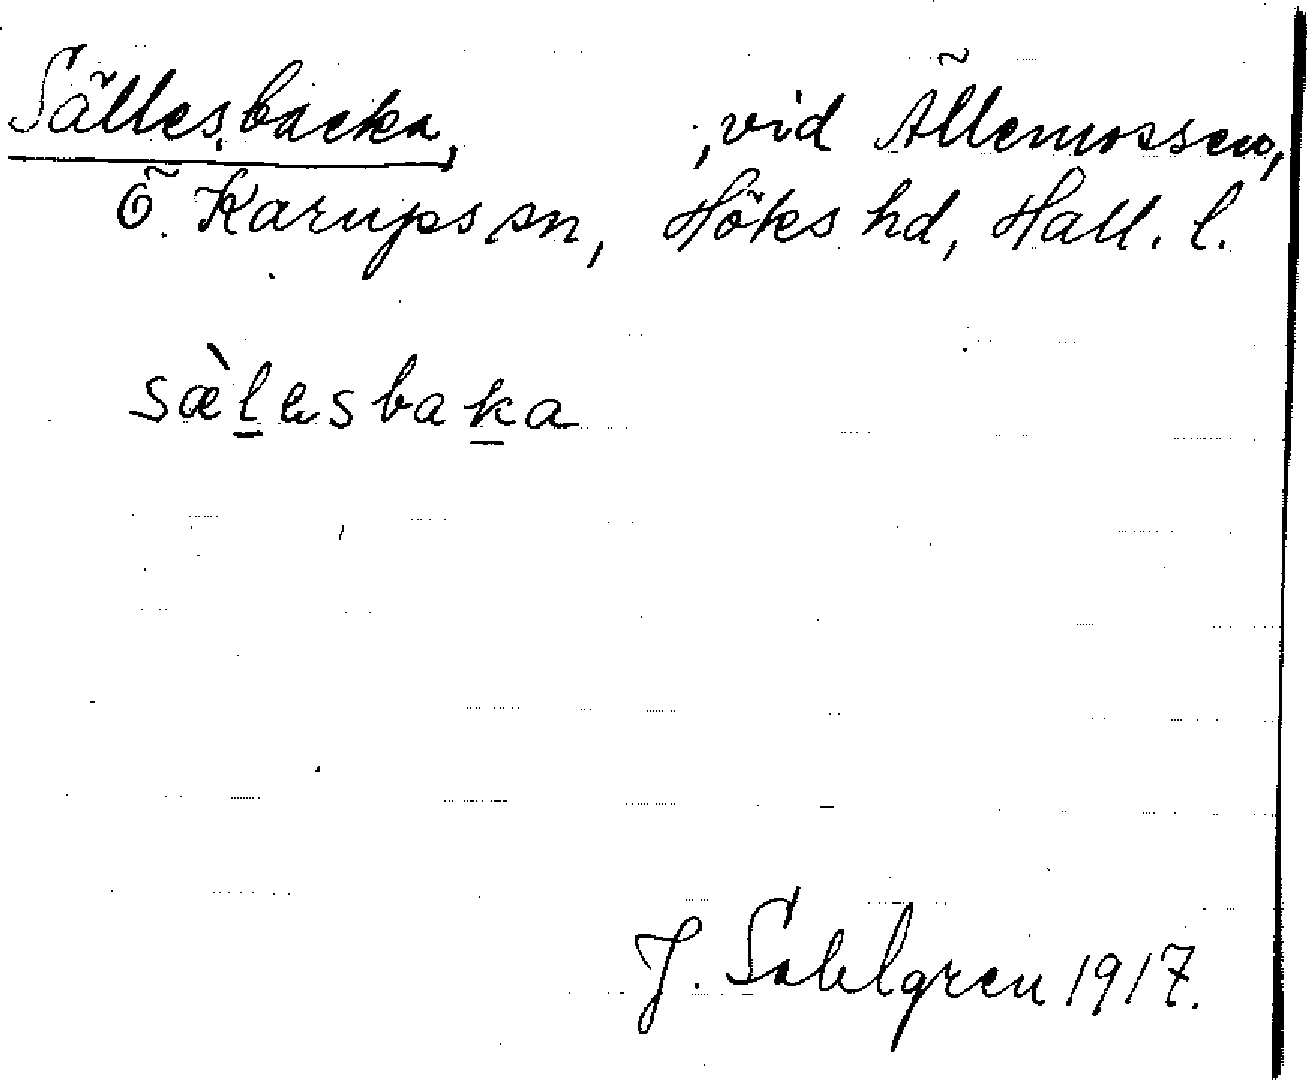 Sällesbacka, , vid Ällemossen,
Ö. Karups sn, Höks hd, Hall. l.
sæ̀l̠esbak̠a
J. Sahlgren 1917.